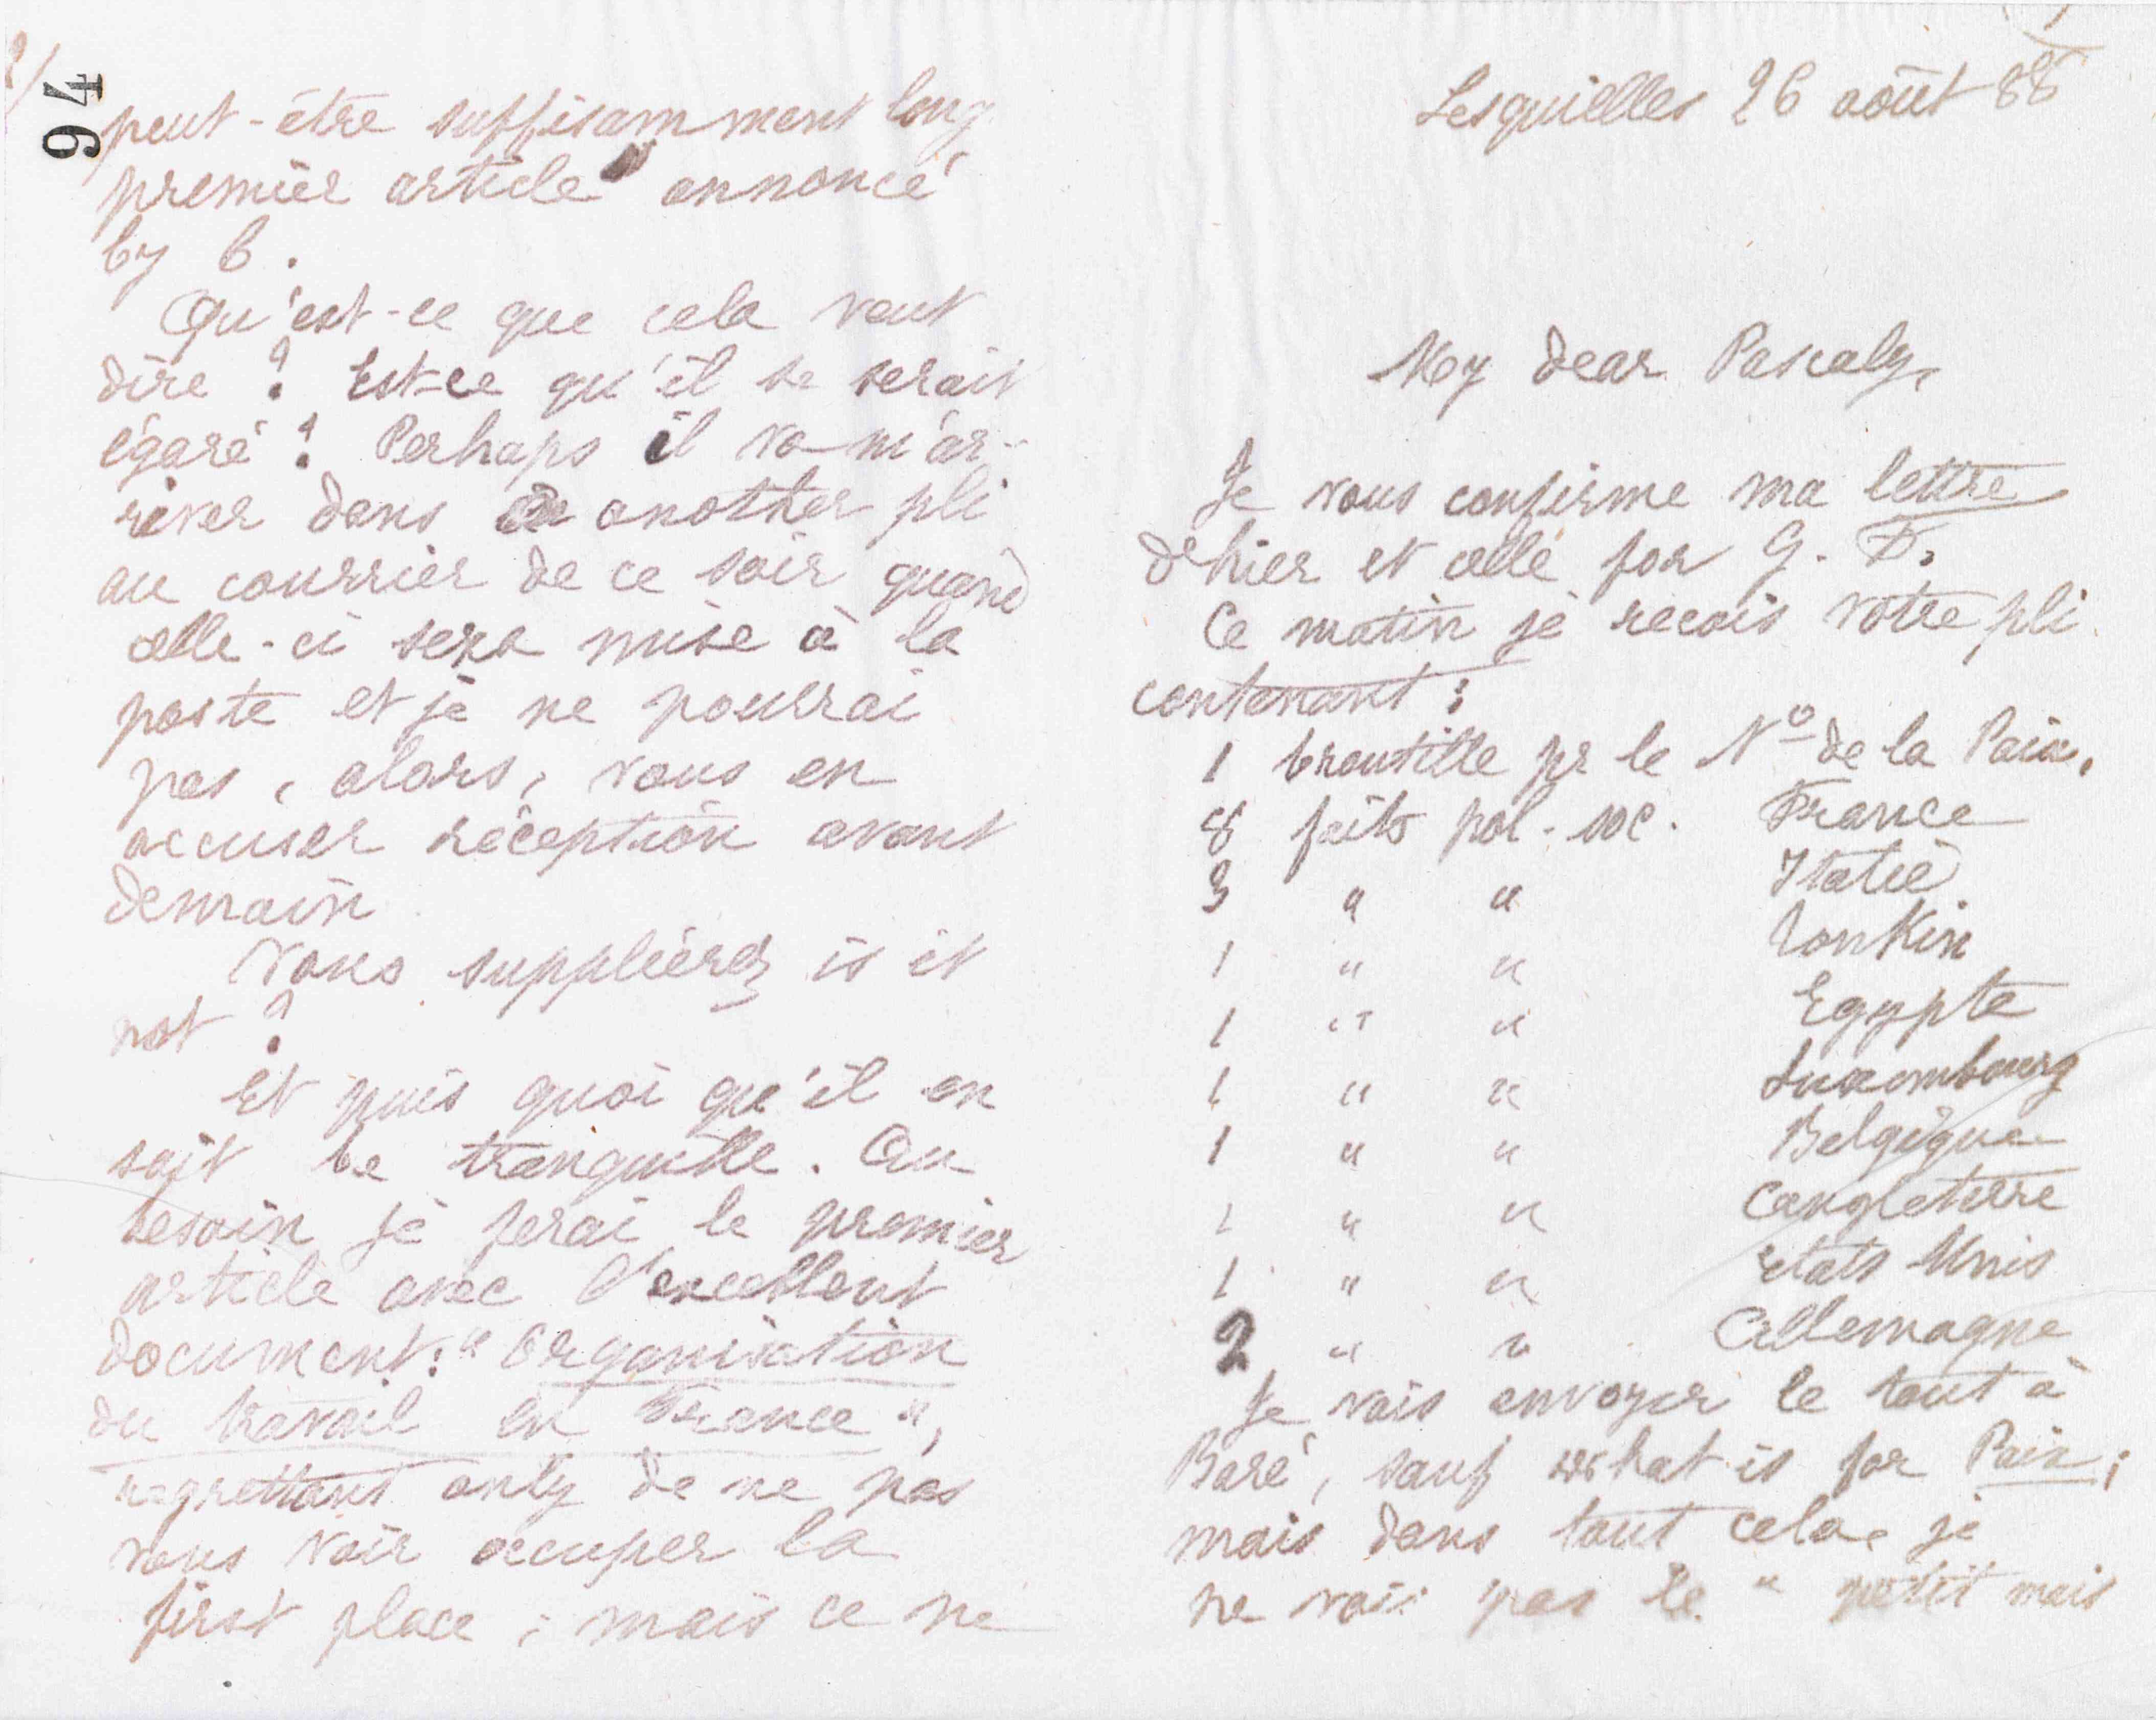 Lesquielles 26 août 88
My dear Pascaly,
Je vous confirme ma lettre
d'hier et celle for G. F.
Ce matin je recois votre pli
contenant :
1 broutille pr le No de la Paix.
8 faits pol. soc. France
3 " " Italie
1 " " Tonkin
1 " " Egypte
1 " " Luxembourg
1 " " Belgique
1 " " Angleterre
1 " " Etats Unis
2 " " Allemagne
Je vais envoyer le tout à
Baré, sauf what is for Paix ;
mais dans tout cela je
ne vois pas le " petit mais
94
peut-être suffisamment long
premier article annoncé
by b.
Qu'est-ce que cela veut
dire ? Est-ce qu'il se serait
égaré ? Perhaps il va m'ar-
river dans another pli
au courrier de ce soir quand
celle-ci sera mise à la
poste et je ne pourrai
pas, alors, vous en
accuser réception avant
demain
Vous suppléerez is it
not ?
Et puis quoi qu'il en
soit be tranquille. Au
besoin je ferai le premier
article avec l'excellent
document : " Organisation
du travail en France ",
regrettant only de ne pas
vous voir occuper la
first place ; mais ce ne